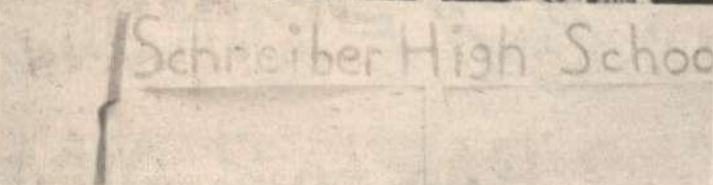 Schreiber High Schoo